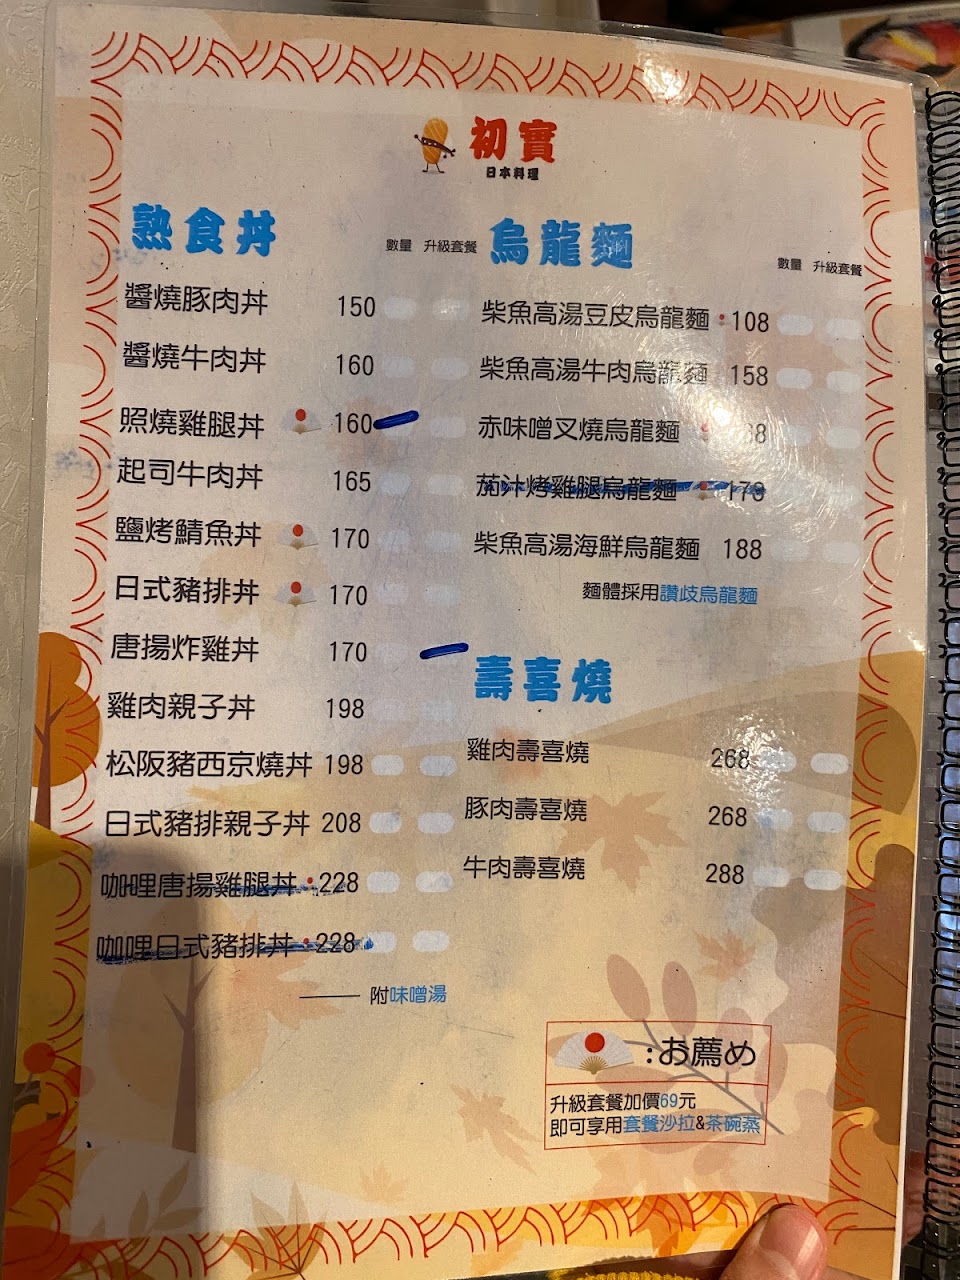 初實
日本料理
熟食丼 數量 升級套餐
醬燒豚肉丼 150
醬燒牛肉丼 160
照燒雞腿丼 160
起司牛肉丼 165
鹽烤鯖魚丼 170
日式豬排丼 170
唐揚炸雞丼 170
雞肉親子丼 198
松阪豬西京燒丼 198
日式豬排親子丼 208
咖哩唐揚雞腿丼 228
咖哩日式豬排丼 228
附味噌湯
烏龍麵 數量 升級套餐
柴魚高湯豆皮烏龍麵 108
柴魚高湯牛肉烏龍麵 158
赤味噌叉燒烏龍麵
茄汁烤雞腿烏龍麵
柴魚高湯海鮮烏龍麵 188
麵體採用讚歧烏龍麵
壽喜燒
雞肉壽喜燒 268
豚肉壽喜燒 268
牛肉壽喜燒 288
:お薦め
升級套餐加價69元
即可享用套餐沙拉&茶碗蒸